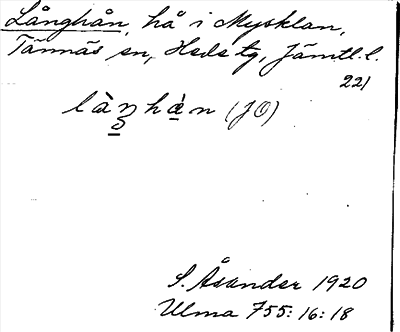 Långhån, hå i Mysklan,
Tännäs sn, Heds tg, Jämtl. l.
221
làŋhàn (JO)
S. Åsander 1920
Ulma 755:16:18